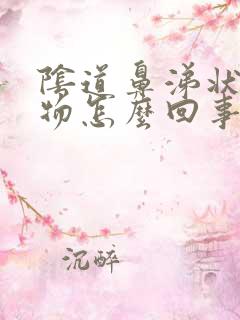 陰道鼻涕狀
物怎麼回事
沉醉